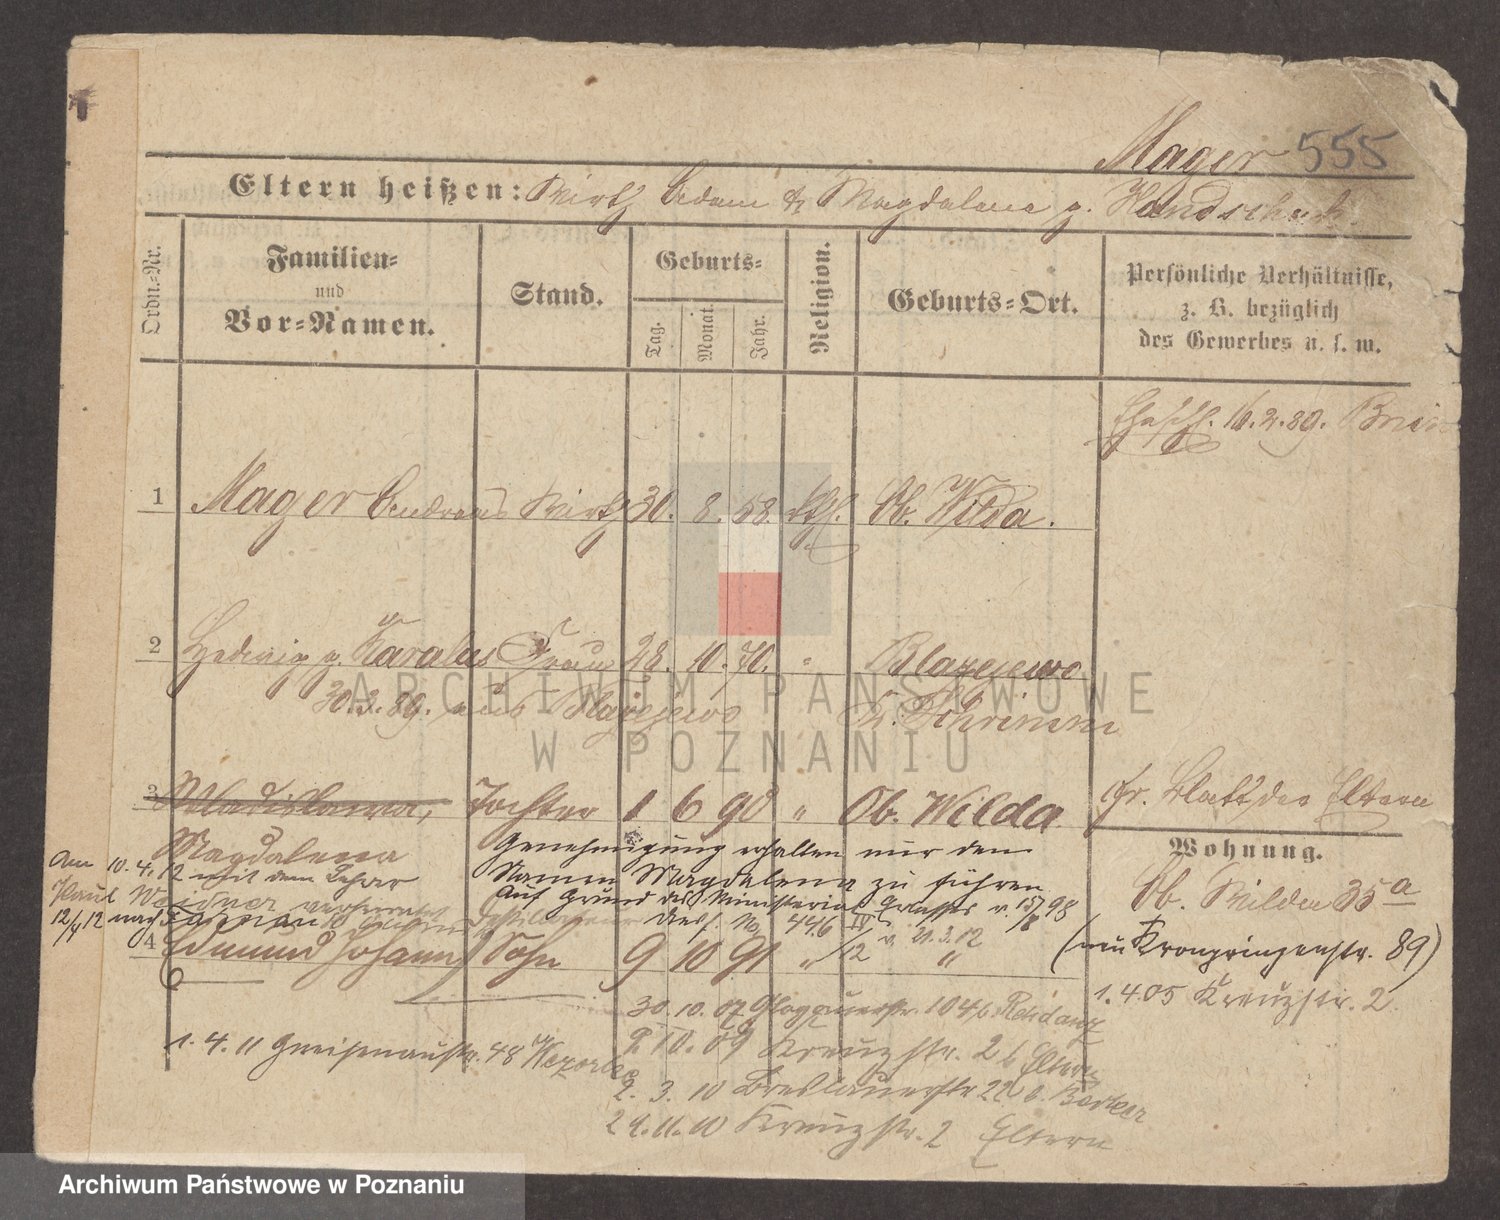 Mager 555
Eltern heißen: Wirth Adam & Magdalena g. Handschuh
Ordn.-Nr.
Familien-
und
Vor-Namen.
Stand.
Geburts-
Tag.
Monat.
Jahr.
Religion.
Geburts-Ort.
Persönliche Verhältnisse,
z. B. bezüglich
des Gewerbes u. s. w.
16.2.89. Bnin
1 Mager Andreas Wirth 30. 8. 58. kth. Ob. Wilda.
2 Hedwig g. Karalus Frau 28. 10. 70. " Blazejewo
30.3.89. aus Blazejewo Kr. Schrimm
3 Wladislawa, Tochter 1 6 90 " Ob. Wilda fr. Blatt der Eltern
Magdalena Genehmigung erhalten nur den
Namen Magdalena zu führen
Auf Grund des Ministerial Erlasses v. 15/7 98
No 4446 v. 21.3.12
Am 10.4.12 mit dem
Paul Weidner verheiratet
12/4 12 nach
4 Edmund Johann Sohn 9 10 91 " "
Wohnung.
Ob. Wilda 35a
(neu Kronprinzenstr. 89)
1.4.05 Kreuzstr. 2
30.10.07 Glogauerstr. 104 b.
9.10.09 Kreuzstr. 2 b Eltern
1.4.11 Gneisenaustr. 48
2.3.10 Breslauerstr 22 b.
24.11.10 Kreuzstr. 2 Eltern
ARCHIWUM PAŃSTWOWE
W POZNANIU
Archiwum Państwowe w Poznaniu